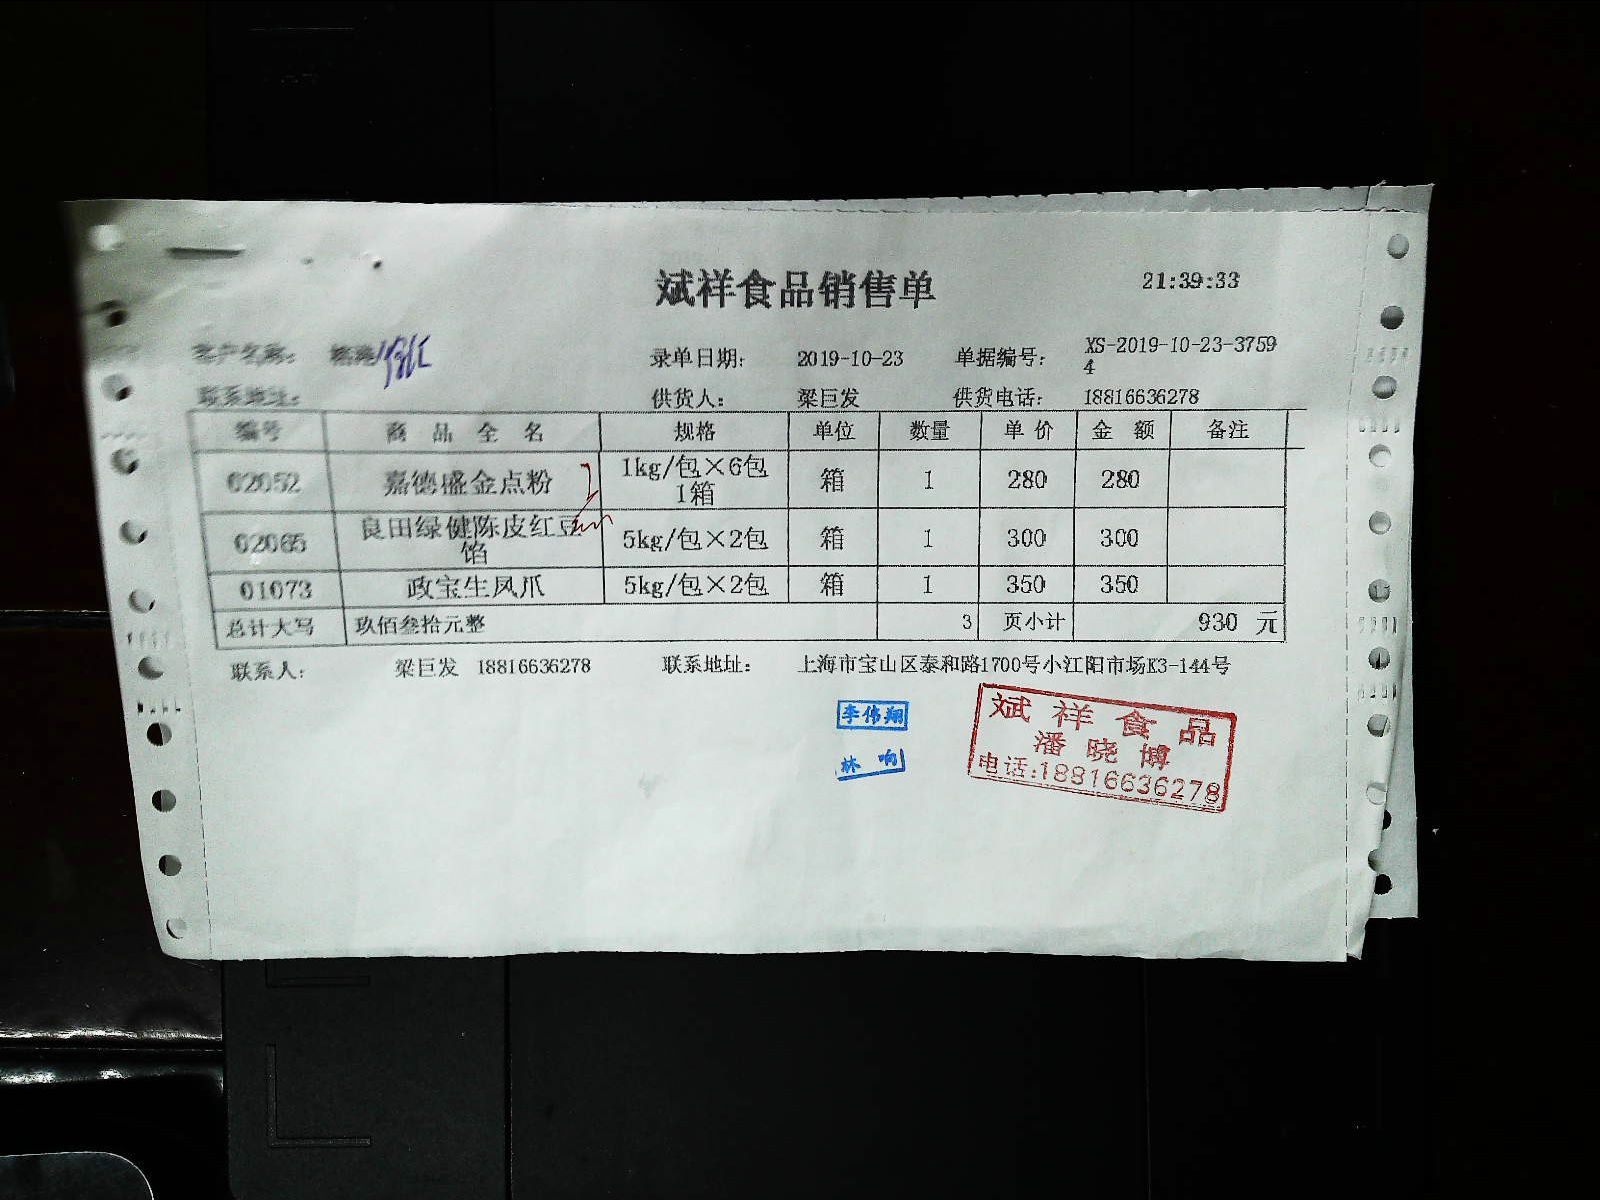 斌祥食品销售单 21:39:33
客户名称:
录单日期: 2019-10-23 单据编号: XS-2019-10-23-3759
4
联系地址: 供货人: 梁巨发 供货电话: 18816636278
编号 商品全名 规格 单位 数量 单价 金额 备注
02052 嘉德盛金点粉 1kg/包×6包 箱 1 280 280
1箱
02065 良田绿健陈皮红豆 5kg/包×2包 箱 1 300 300
馅
01073 政宝生凤爪 5kg/包×2包 箱 1 350 350
总计大写 玖佰叁拾元整 3 页小计 930 元
联系人: 梁巨发 18816636278 联系地址: 上海市宝山区泰和路1700号小江阳市场K3-144号
李伟翔
林响
斌祥食品
潘晓博
电话:18816636278